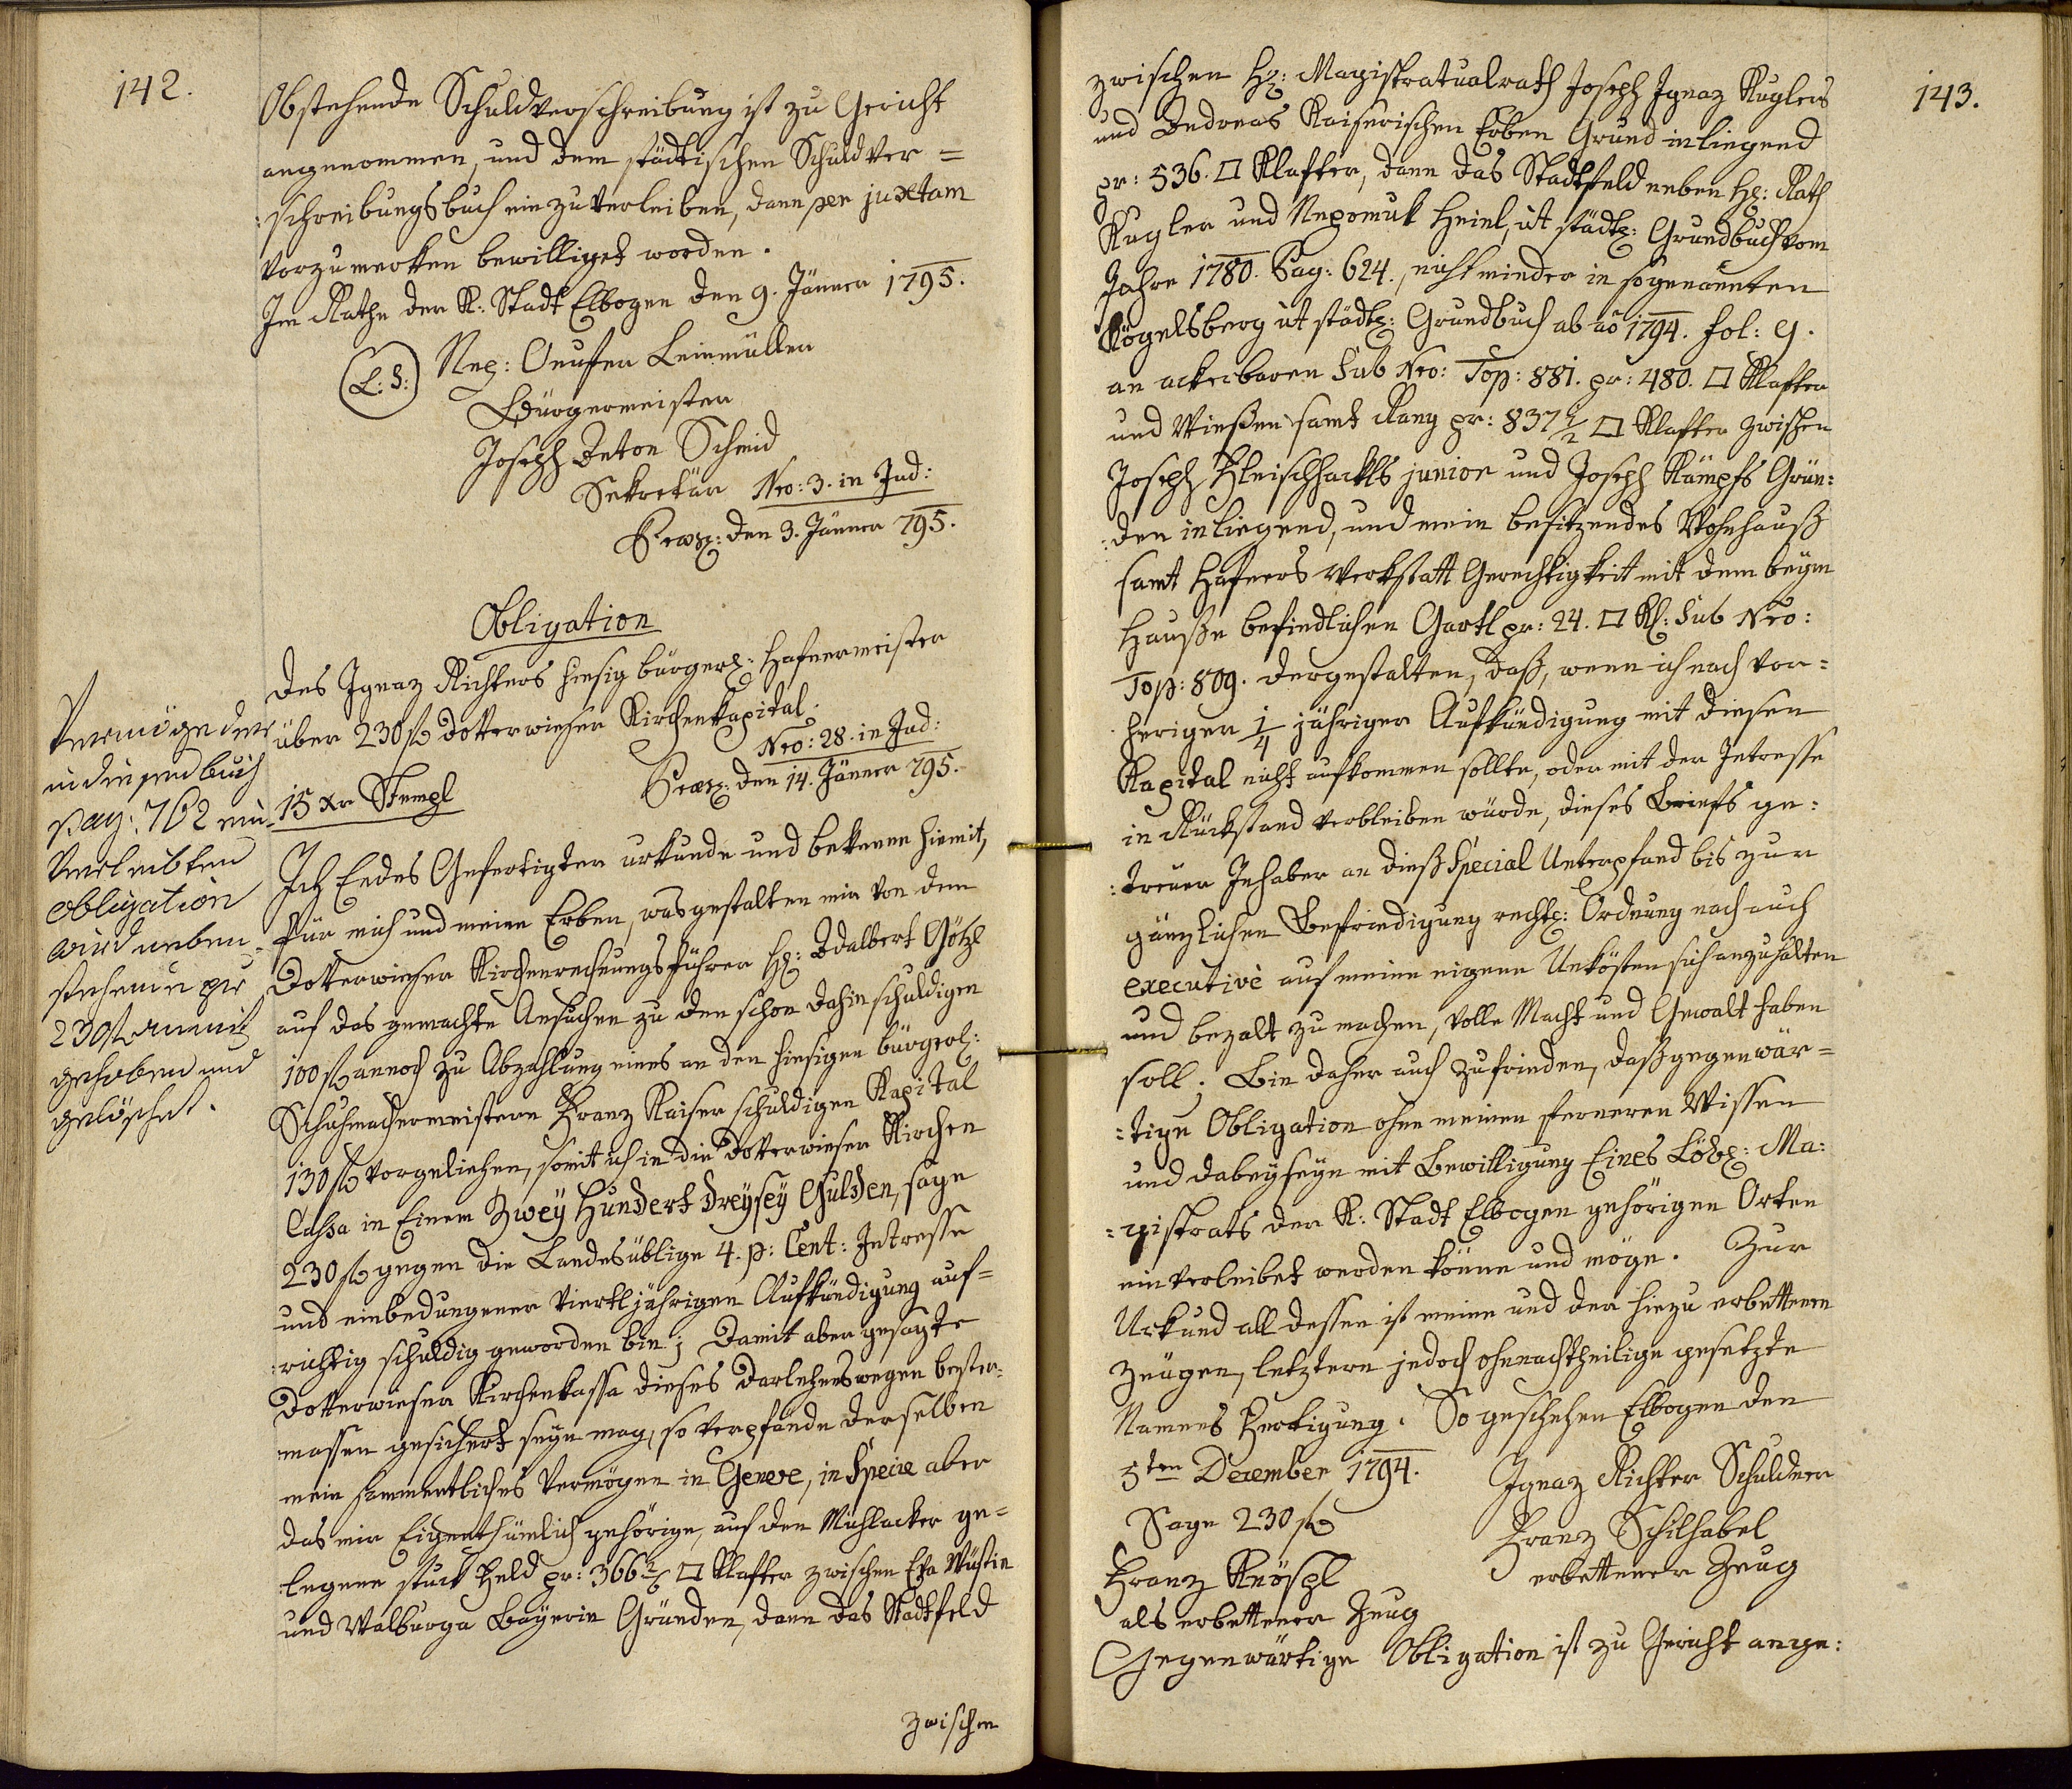 142.
Obstehende Schuldverschreibung ist zu Gericht
angenommen, und dem städtischen Schuldver =
:schreibungsbuch einzuverleiben, dann per juxtam
vorzumerken bewilliget worden.
Im Rathe der K: Stadt Elbogen den 9. Jänner 1795.
(L: S:) Nep: Onufer Leinmüller
Bürgermeister
Joseph Anton Schmid
Sekretär Nro: 3. in Jud:
Praes: den 3. Jänner 795.
Obligation
des Ignaz Richters hiesig bürgerl: Hafnermeister
über 230 f Dotterwieser Kirchenkapital.
Nro: 28. in Jud:
15 xr Stempl
Praes: den 14. Jänner 795.
Ich Endes Gefertigter urkunde und bekenne hiemit,
für mich und meine Erben, was gestalten mir von dem
Dotterwieser Kirchenrechnungsführer H: Adalbert Götzl
auf das gemachte Ansuchen zu den schon dahin schuldigen
100 f annoch zu Abzahlung eines an den hiesigen bürgerl:
Schuhmachermeistern Franz Kaiser schuldigen Kapital
130 f vorgeliehen, somit ich in die Dotterwieser Kirchen
Cassa in Einem Zwey Hundert dreysey Gulden, sage
230 f gegen die Landesüblige 4. p: Cent: Intresse
und einbedungener viertljährigen Aufkündigung auf=
:richtig schuldig geworden bin; Damit aber gesagte
Dotterwieser Kirchenkassa dieses Darlehens wegen bester:
massen gesichert seyn mag, so verpfände derselben
mein sammentliches Vermögen in Genere, in Specie aber
das mir Eigenthümlich gehörige, auf den Mühlacker ge=
legene stuck Feld pr: 366 2/6 □ Klafter zwischen Eva Wüstin
und Walburga Bayerin Gründen, dann das Stadtfeld
zwischen
Vermöge der
in diesem buch
pag: 762 ein-
verleibten
obligation
wird neben-
stehende per
230 f anmit
gehoben und
gelöschet.
143.
zwischen H: Magistratualrath Joseph Ignaz Kuglers
und Andreas Kaiserischen Erben Grund inliegend
pr: 536. □ Klafter, dann das Stadtfeld neben H: Rath
Kugler und Nepomuk Heinl, ut städt: Grundbuch vom
Jahre 1780. Pag: 624., nicht minder in sogenannten
Kögelsberg ut städt: Grundbuch ab ao 1794. fol: 9.
an ackerbaren Sub Nro: Top: 881. pr: 480. □ Klafter
und Wiesen samt Rang pr: 837 1/2 □ Klafter zwischen
Joseph Fleischhackls junior und Joseph Kämpfs Grün:
:den inliegend, und mein besitzendes Wohnhauß
samt Hafners Werkstatt Gerechtigkeit mit dem beym
Hauße befindlichen Gartl pr: 24. □ Kl: Sub Nro:
Top: 809. dergestalten, daß, wenn ich nach vor=
heriger 1/4 jähriger Aufkündigung mit diesen
Kapital nicht aufkommen sollte, oder mit der Intresse
in Rückstand verbleiben würde, dieses Briefs ge:
:treuer Inhaber an dieß Special Unterpfand bis zur
gänzlichen Befriedigung rechtl: Ordnung nach auch
executivè auf meine eigene Unkösten sich anzuhalten
und bezalt zu machen, volle Macht und Gewalt haben
soll. Bin daher auch zufrieden, daß gegenwär=
=tige Obligation ohne meinen ferneren Wissen
und dabeyseyn mit Bewilligung Eines Löbl: Ma:
=gistrats der K: Stadt Elbogen gehörigen Orten
einverleibet werden könne und möge. Zur
Urkund all dessen ist meine und der hiezu erbettenen
Zeugen, letztern jedoch ohnnachtheilige gesetzte
Namens Fertigung. So geschehen Elbogen den
5ten December 1794. Ignaz Richter Schuldner
Sage 230 f
Franz Schilhabel
erbettener Zeug
Franz Knöspl
als erbettener Zeug
Gegenwärtige Obligation ist zu Gericht ange: